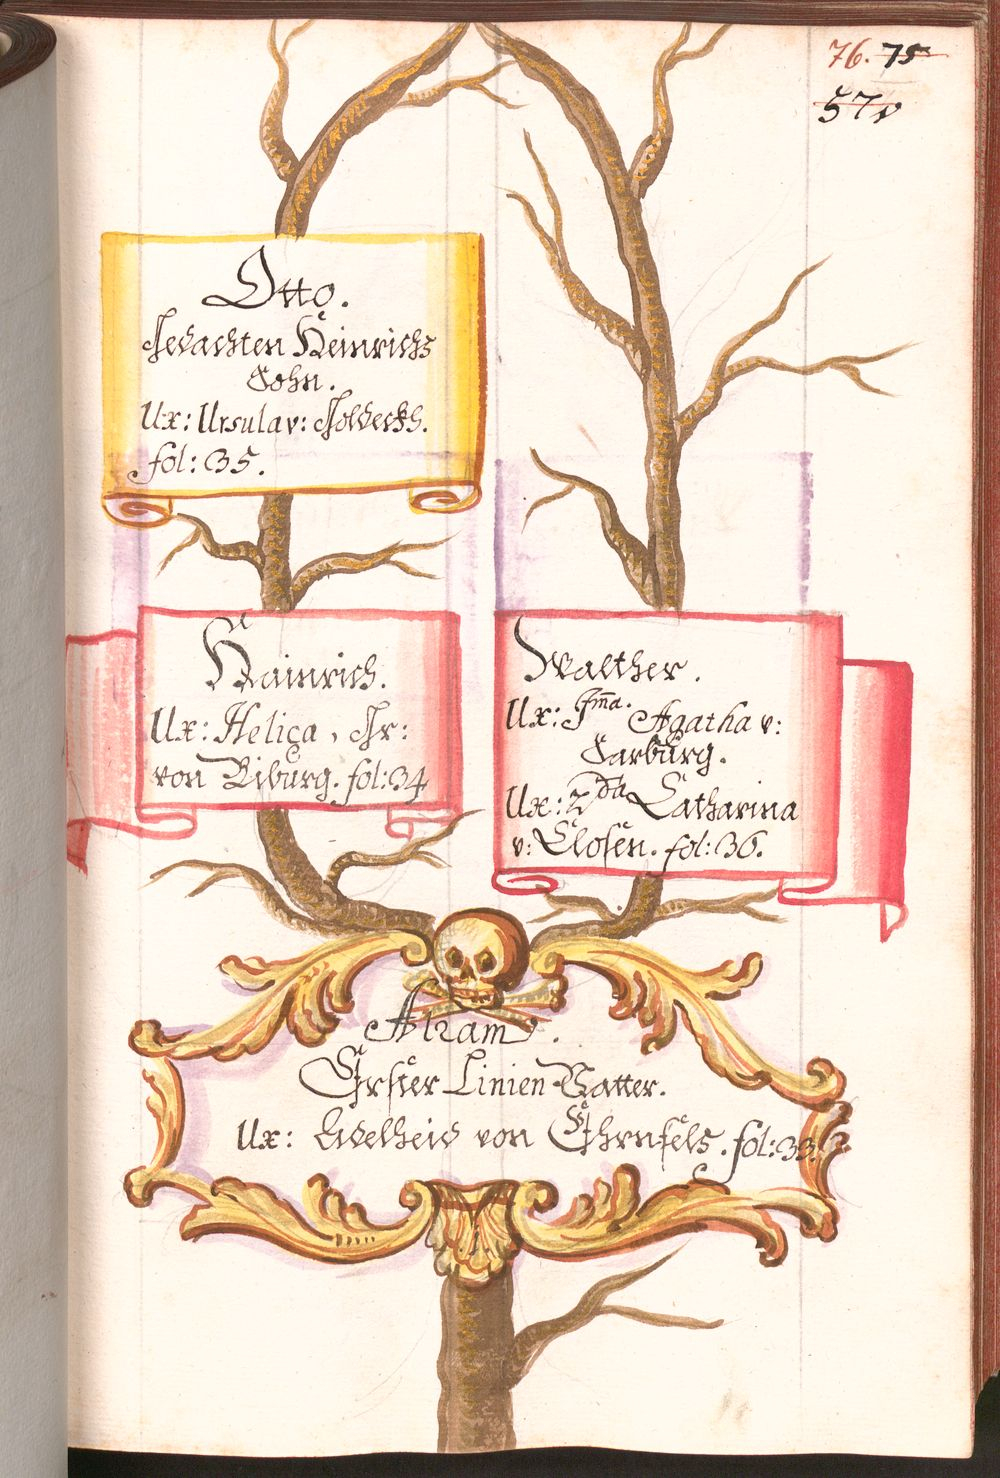 76. 75
57v
Otto.
Gedachten Heinrichs
Sohn.
Ux: Ursula v: Goldeckh.
fol: 35.
Hainrich.
Ux: Helica, Gr:
von Biburg. fol: 34
Walther.
Ux: 1ma. Agatha v:
Sarburg.
Ux: 2da Catharina
v: Closen. fol: 36.
Alram.
Erster Linien Vatter.
Ux: Adelheid von Ehrnfels. fol: 33.